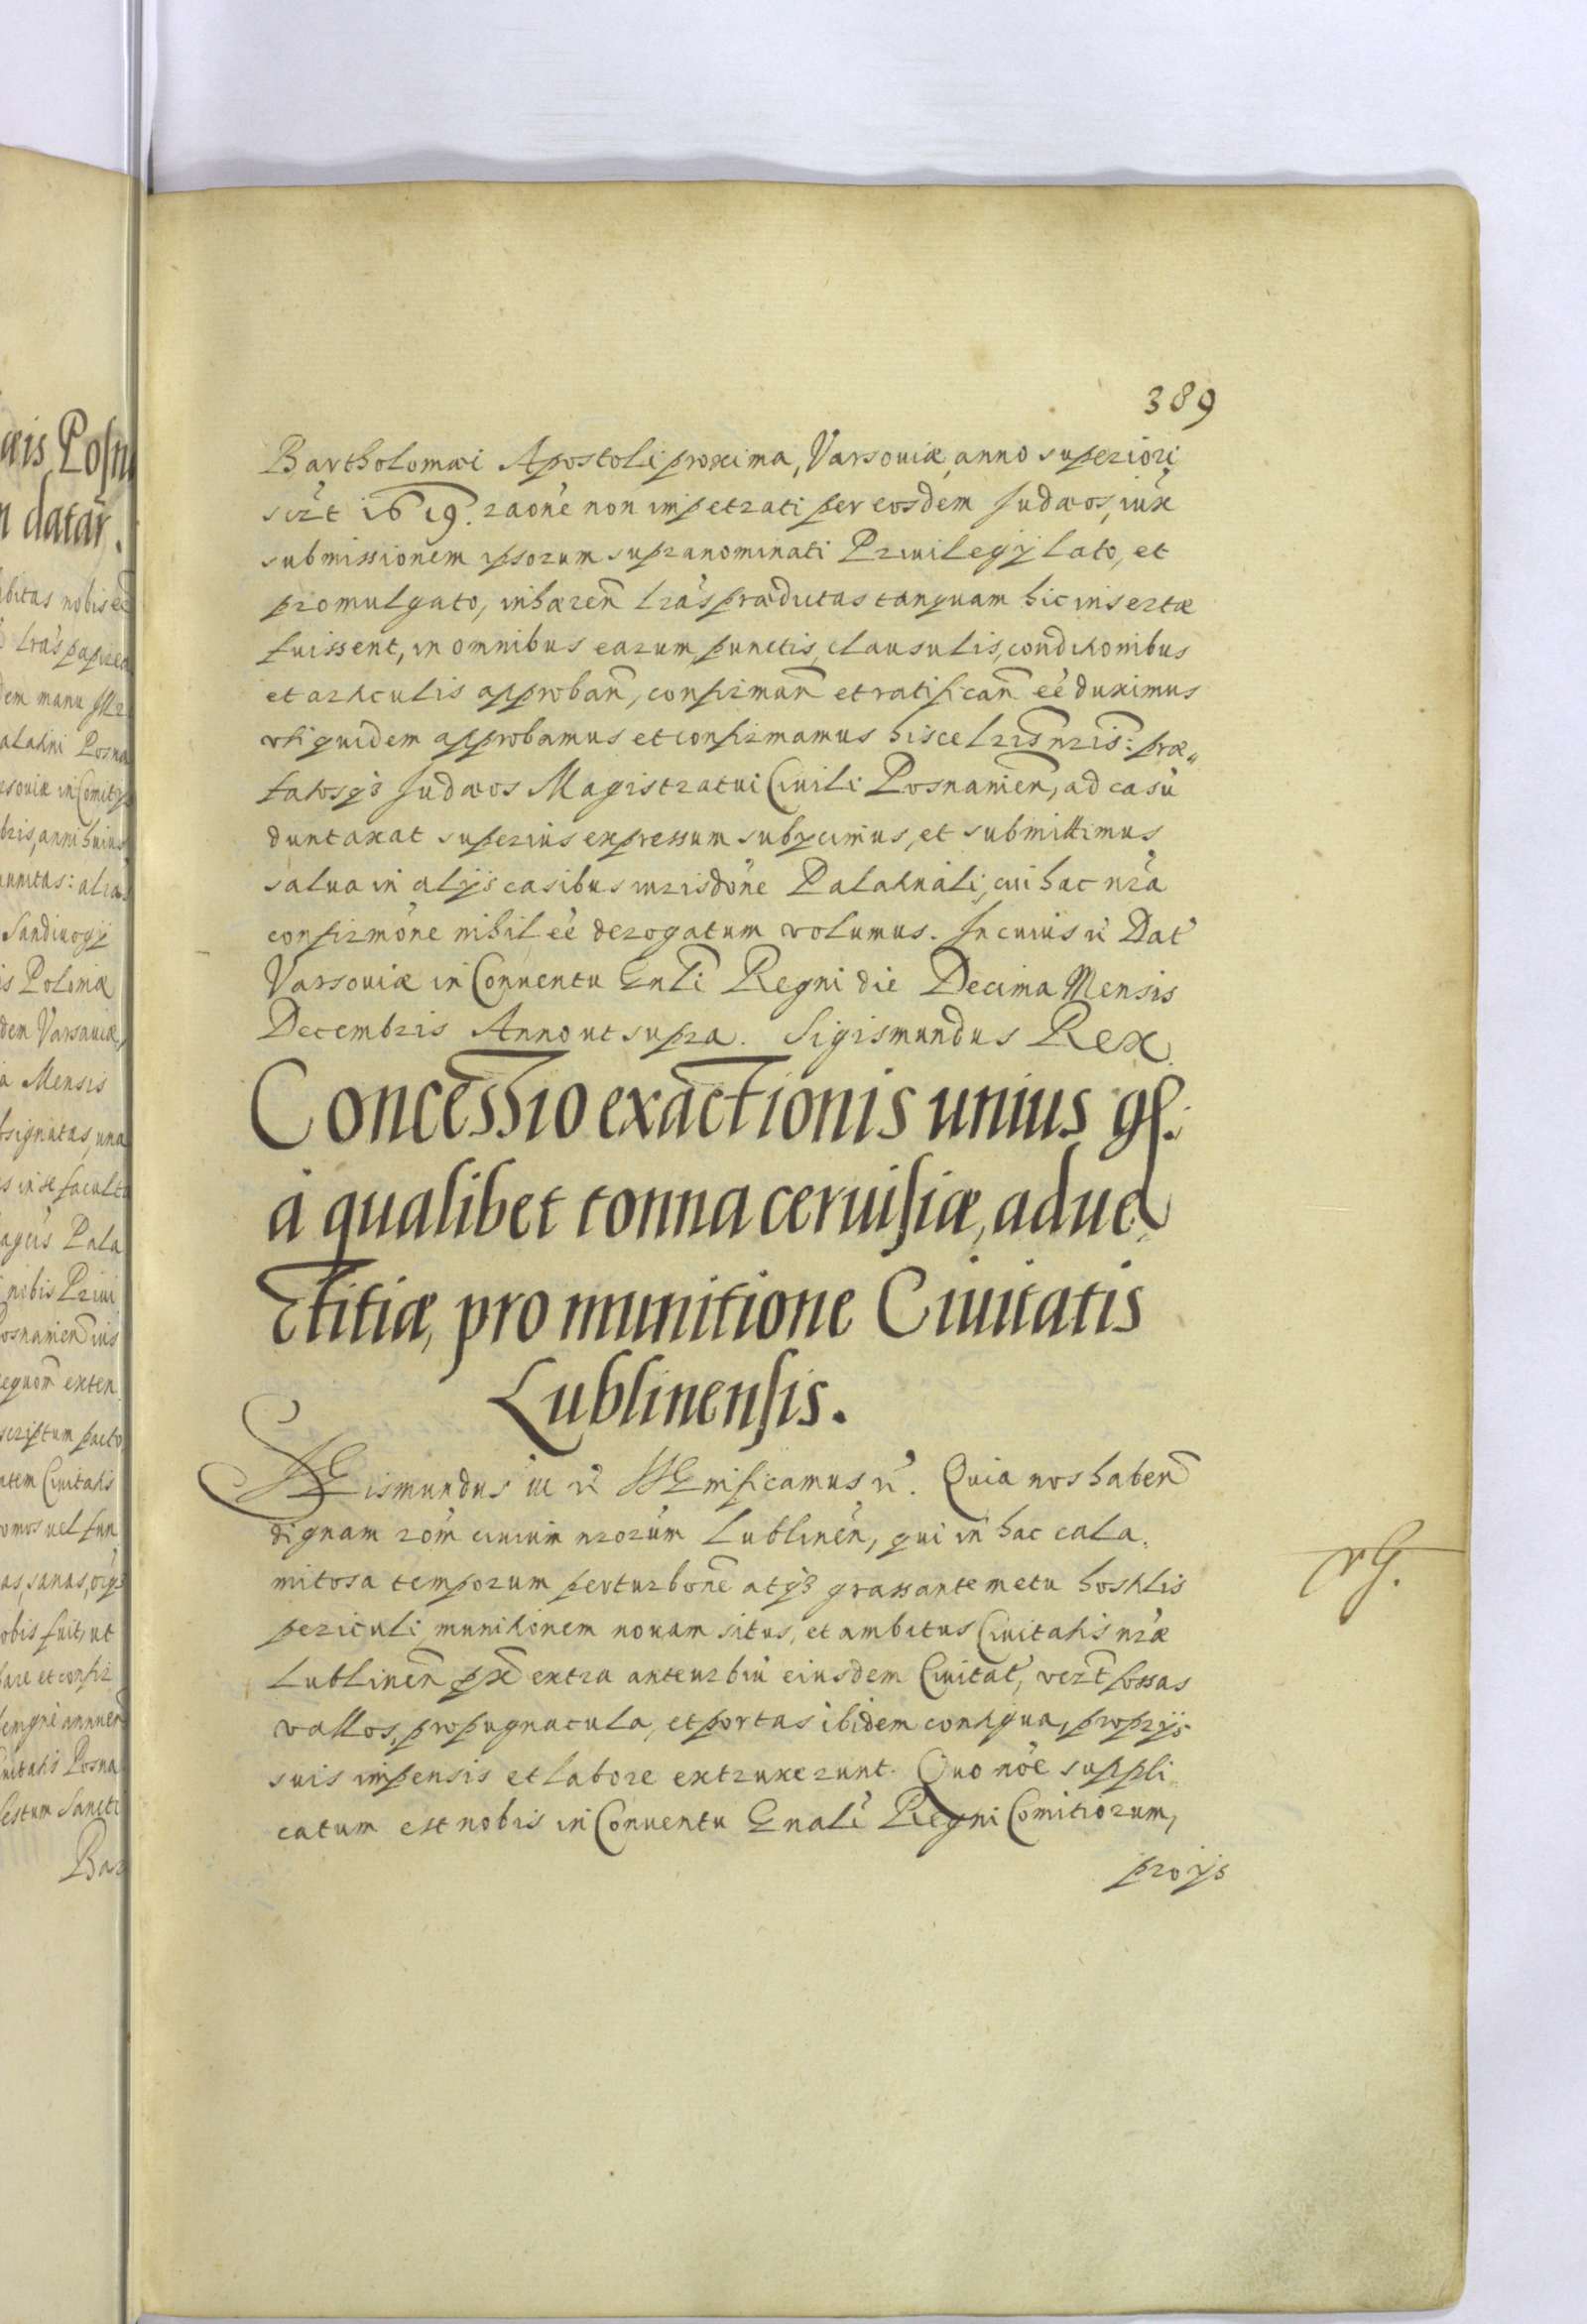 389
Bartholomæi Apostoli proxima, Varsouiæ, anno superiori
scilt 1619. raone non impetrati per eosdem Judæos, iux
submissionem ipsorum supranominati Priuilegij lato, et
promulgato, inhæren lras prædictas tanquam hic insertæ
fuissent, in omnibus earum, punctis, clausulis, conditionibus
et articulis approban, confirman et ratifican eé duximus
vti quidem approbamus et confirmamus hisce lris nris: præ„
fatosq3 Judæos Magistratui Ciuili Posnanien, ad casu
duntaxat superius expressum subijcimus, et submittimus
salua in alijs casibus iurisdone Palatinali, cui hac nra
confirmone nihil eé derogatum volumus. In cuius rei Dat
Varsouiæ in Conuentu Gnli Regni die Decima Mensis
Decembris Anno ut supra. Sigismundus Rex.
Concessio exactionis unius gs.
à qualibet tonna ceruisiæ, aduec
ctitiæ, pro munitione Ciuitatis
Lublinensis.
Sigismundus III rc Significamus rc. Quia nos haben
dignam rom ciuium nrorum Lublinen, qui in hac cala„
mitosa temporum perturbone atq3 grassante metu hostilis
periculi, munitionem nouam situs, et ambitus Ciuitatis nræ
Lublinen extra anteurbiu eiusdem Ciuitat, fossas
vallos, propugnacula, et portas ibidem contigua, proprijs
suis impensis et labore extruxerunt. Quo noe suppli„
catum est nobis in Conuentu Gnali Regni Comitiorum,
pro ijs
æis Posn
n datar.
bitas nobis
lras papirea
dem manu
alatini Posna
rsouiæ in Comitijs
bris, anni huius
Sandiuogij
is Poloniæ
dem Varsauiæ,
a Mensis
signatas, una
s in se faculta
Pala
nobis Priui
osnanien ius
exten
scriptum pacto
atem Ciuitatis
omos vel fun
obis fuit, ut
are et confir
nnuen
uitatis Posna
festum Sancti
Bar